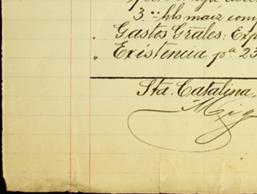 3 " hlo maiz com
" Gastos Grales. Exp
" Existencia pª 23
Sta. Catalina,
Mig